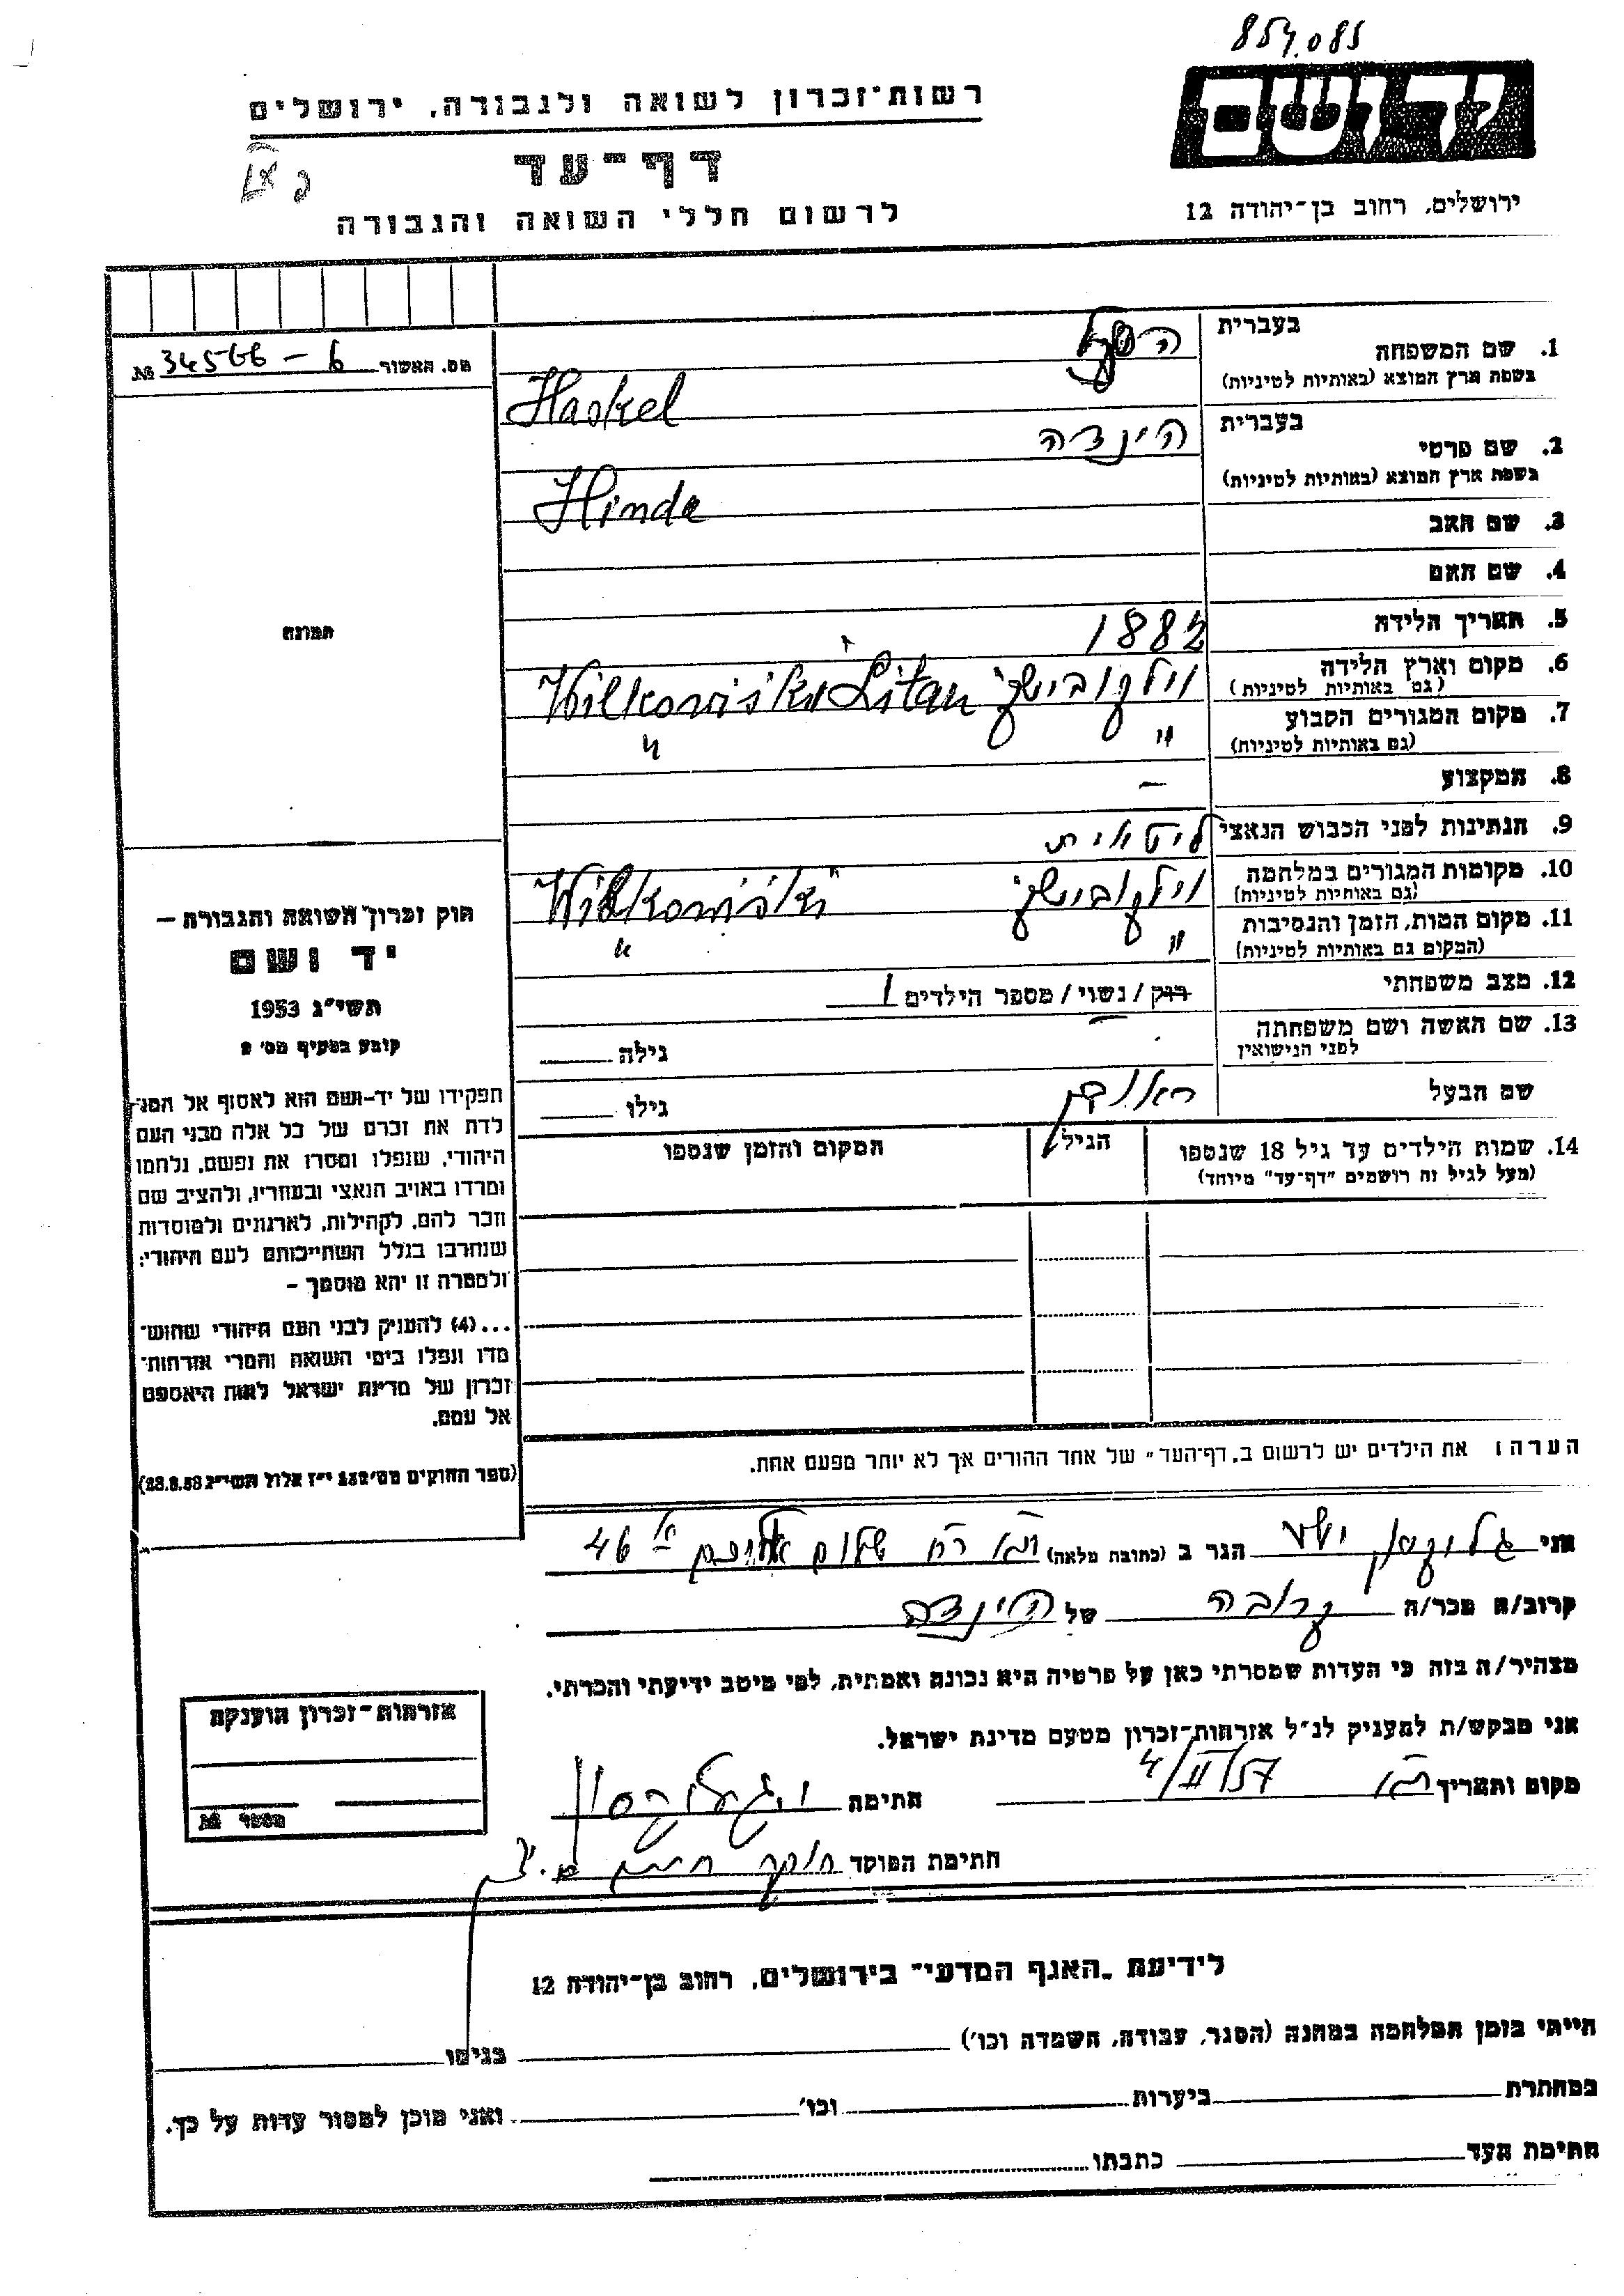 854.085
יד ושם
רשות־זכרון לשואה ולגבורה, ירושלים
דף־עד
לרשום חללי השואה והגבורה
ירושלים, רחוב בן־יהודה 12
מס. האשור 34566 – 6 №
1. שם המשפחה בעברית השקל
בשפת ארץ המוצא (באותיות לטיניות) Haskel
2. שם פרטי בעברית הינדה
בשפת ארץ המוצא (באותיות לטיניות) Hinda
3. שם האב
4. שם האם
5. תאריך הלידה 1882
6. מקום וארץ הלידה (גם באותיות לטיניות) וילקובישקי Wilkowiški Litau
7. מקום המגורים הקבוע (גם באותיות לטיניות) " "
8. המקצוע –
9. הנתינות לפני הכבוש הנאצי ליטאית
10. מקומות המגורים במלחמה (גם באותיות לטיניות) וילקובישקי Wilkowiški
11. מקום המות, הזמן והנסיבות (המקום גם באותיות לטיניות) " "
12. מצב משפחתי רוק / נשוי / מספר הילדים 1
13. שם האשה ושם משפחתה לפני הנישואין – גילה
שם הבעל ראובן גילו
14. שמות הילדים עד גיל 18 שנספו
(מעל לגיל זה רושמים "דף־עד" מיוחד)
הגיל
המקום והזמן שנספו
תמונה
חוק זכרון השואה והגבורה –
יד ושם
תשי"ג 1953
קובע בסעיף מס' 2
תפקידו של יד־ושם הוא לאסוף אל המו־
לדת את זכרם של כל אלה מבני העם
היהודי, שנפלו ומסרו את נפשם, נלחמו
ומרדו באויב הנאצי ובעוזריו, ולהציב שם
וזכר להם, לקהילות, לארגונים ולמוסדות
שנחרבו בגלל השתייכותם לעם היהודי;
ולמטרה זו יהא מוסמך –
...(4) להעניק לבני העם היהודי שהוש־
מדו ונפלו בימי השואה והמרי אזרחות־
זכרון של מדינת ישראל לאות היאספם
אל עמם.
(ספר החוקים מס' 132 י"ז אלול תשי"ג 28.8.53)
הערה: את הילדים יש לרשום ב„דף־העד" של אחד ההורים אך לא יותר מפעם אחת.
אני גליקסון הגר ב (כתובת מלאה) ת"א רח' שלום עליכם 46
קרוב/ה מכר/ה קרובה של הינדה
מצהיר/ה בזה כי העדות שמסרתי כאן על פרטיה היא נכונה ואמתית, לפי מיטב ידיעתי והכרתי.
אני מבקש/ת להעניק לנ"ל אזרחות־זכרון מטעם מדינת ישראל.
מקום ותאריך ת"א 4/II/57 חתימה
חתימת הפוקד
אזרחות־זכרון הוענקה
מספר №
לידיעת „האגף המדעי" בירושלים, רחוב בן־יהודה 12
הייתי בזמן המלחמה במחנה (הסגר, עבודה, השמדה וכו') בגיטו
במחתרת ביערות וכו' ואני מוכן למסור עדות על כך.
חתימת העד כתבתו